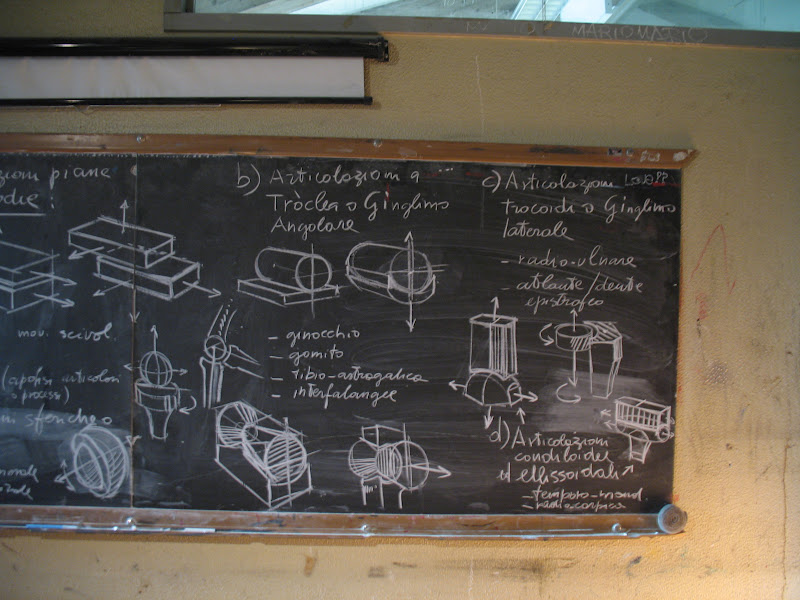 MARIOMARIO
piane
mov. scivol.
(apofisi articolari
processi)
b) Articolazioni a
Tròclea o Ginglimo
Angolare
- ginocchio
- gomito
- tibio-astragalica
- interfalangee
c) Articolazioni
trocoidi o Ginglimo
laterale
- radio-ulnare
- atlante/dente
epistrofeo
d) Articolazioni
condiloidee
ellissoidali
- temporo-mand.
- radio carpica